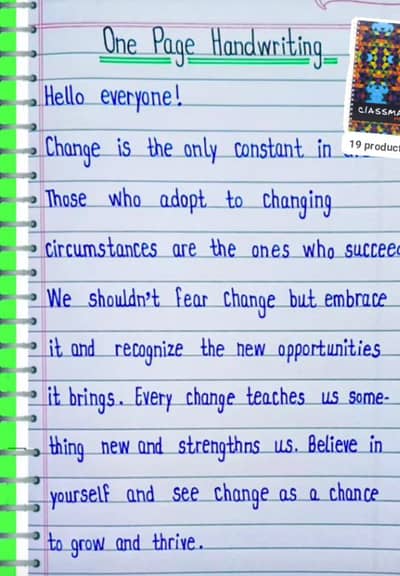 One Page Handwriting
Hello everyone!
CLASSMA
Change is the only constant in
19 product
Those who adopt to changing
circumstances are the ones who succeed
We shouldn't fear change but embrace
it and recognize the new opportunities
it brings. Every change teaches us some-
thing new and strengthns us. Believe in
yourself and see change as a chance
to grow and thrive.